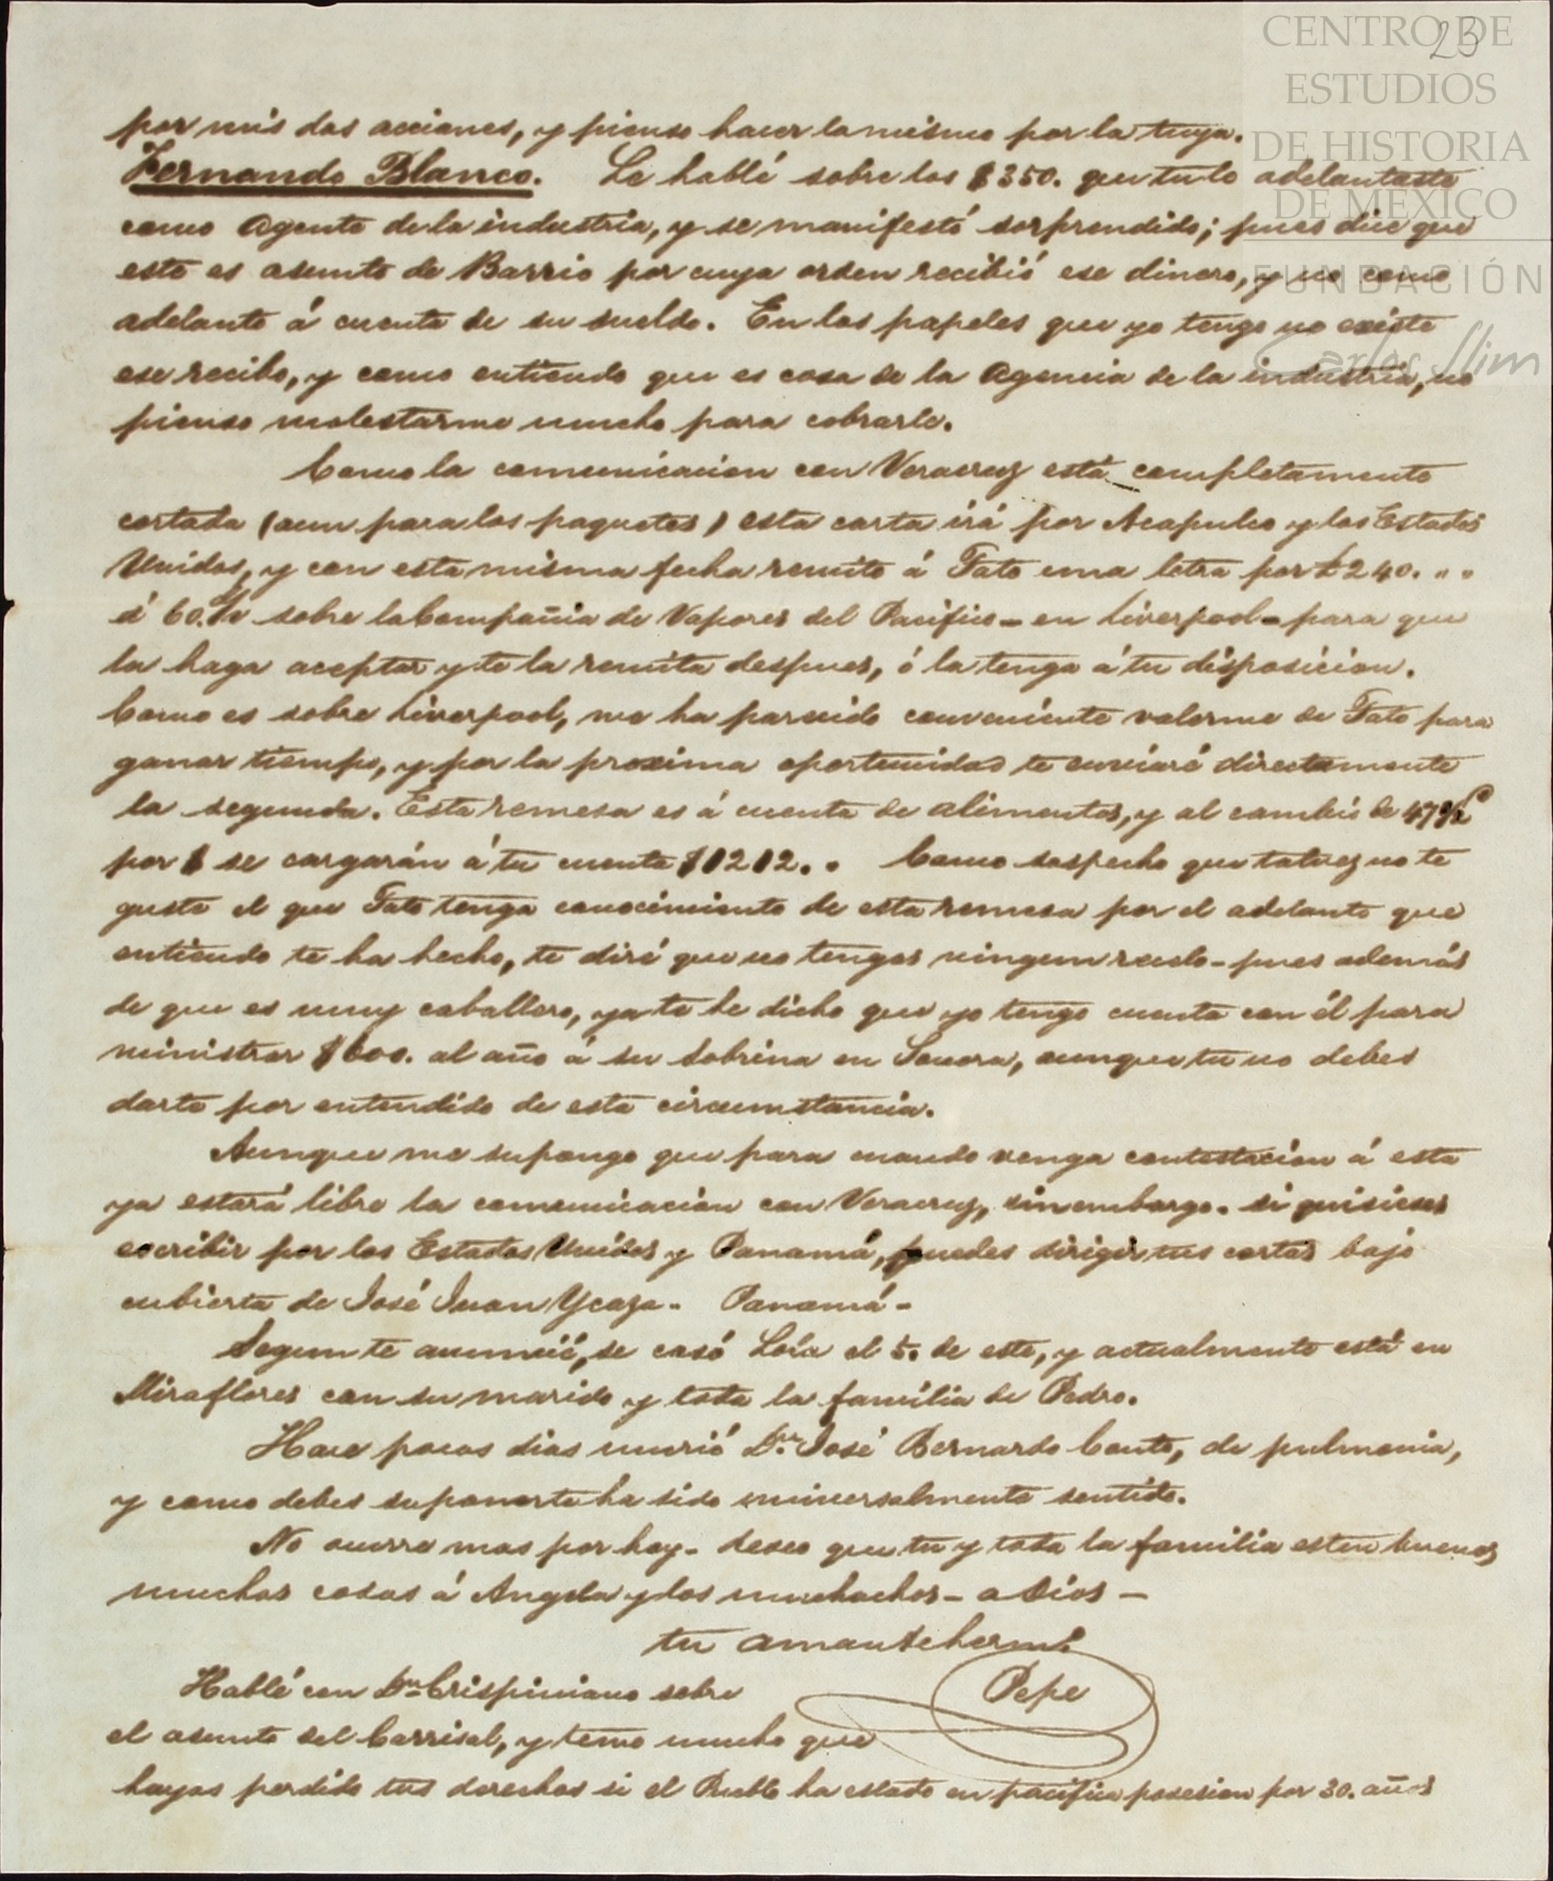 23
CENTRO DE
ESTUDIOS
DE HISTORIA
DE MÉXICO
FUNDACIÓN
Carlos Slim
por mis dos acciones, y pienso hacer lo mismo por la tuya.
Fernando Blanco. Le hablé sobre los $350. que tu le adelantaste
como Agente de la industria, y se manifestó sorprendido; pues dice que
este es asunto de Barrio por cuya orden recibió ese dinero, y no como
adelanto á cuenta de su sueldo. En los papeles que yo tengo no existe
ese recibo, y como entiendo que es cosa de la Agencia de la industria, no
pienso molestarme mucho para cobrarle.
Como la comunicacion con Veracruz está completamente
cortada (aun para los paquetes) esta carta irá por Acapulco y los Estados
Unidos, y con esta misma fecha remito á Tato una letra por £240. " "
á 60. sobre la Compañia de Vapores del Pacifico - en Liverpool - para que
la haga aceptar y te la remita despues, ó la tenga á tu disposicion.
Como es sobre Liverpool, me ha parecido conveniente valerme de Tato para
ganar tiempo, y por la proxima oportunidad te enviaré directamente
la segunda. Esta remesa es á cuenta de alimentos, y al cambio de
por $ se cargarán á tu cuenta $1212.. Como sospecho que talvez no te
guste el que Tato tenga conocimiento de esta remesa por el adelanto que
entiendo te ha hecho, te diré que no tengas ningun recelo - pues además
de que es muy caballero, ya te he dicho que yo tengo cuenta con él para
ministrar $600. al año á su sobrina en Sonora, aunque tu no debes
darte por entendido de esta circumstancia.
Aunque me supongo que para cuando venga contestacion á esta
ya estará libre la comunicacion con Veracruz, sinembargo. si quisieses
escribir por los Estados Unidos y Panamá, puedes dirigir tus cartas bajo
cubierta de José Juan Ycaza - Panamá -
Segun te anuncié, se casó el 5. de este, y actualmente está en
Miraflores con su marido y toda la familia de Pedro.
Hace pocos dias murió Dn. José Bernardo Couto, de pulmonia,
y como debes suponerte ha sido universalmente sentido.
No ocurre mas por hoy - deseo que tu y toda la familia esten buenos
muchas cosas á Angela y los muchachos - adios -
tu amante hermo.
Pepe
Hablé con Dn. Crispiniano sobre
el asunto del Carrisal, y temo mucho que
hayas perdido tus derechos si el Pueblo ha estado en pacifica posesion por 30. años